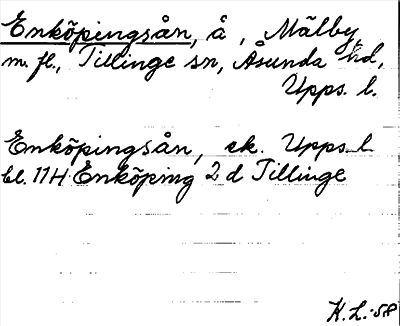 Enköpingsån, å, Mälby
m. fl., Tillinge sn, Åsunda hd,
Upps. l.
Enköpingsån, ek. Upps. l.
bl. 11H Enköping 2 d Tillinge
K. L. -58